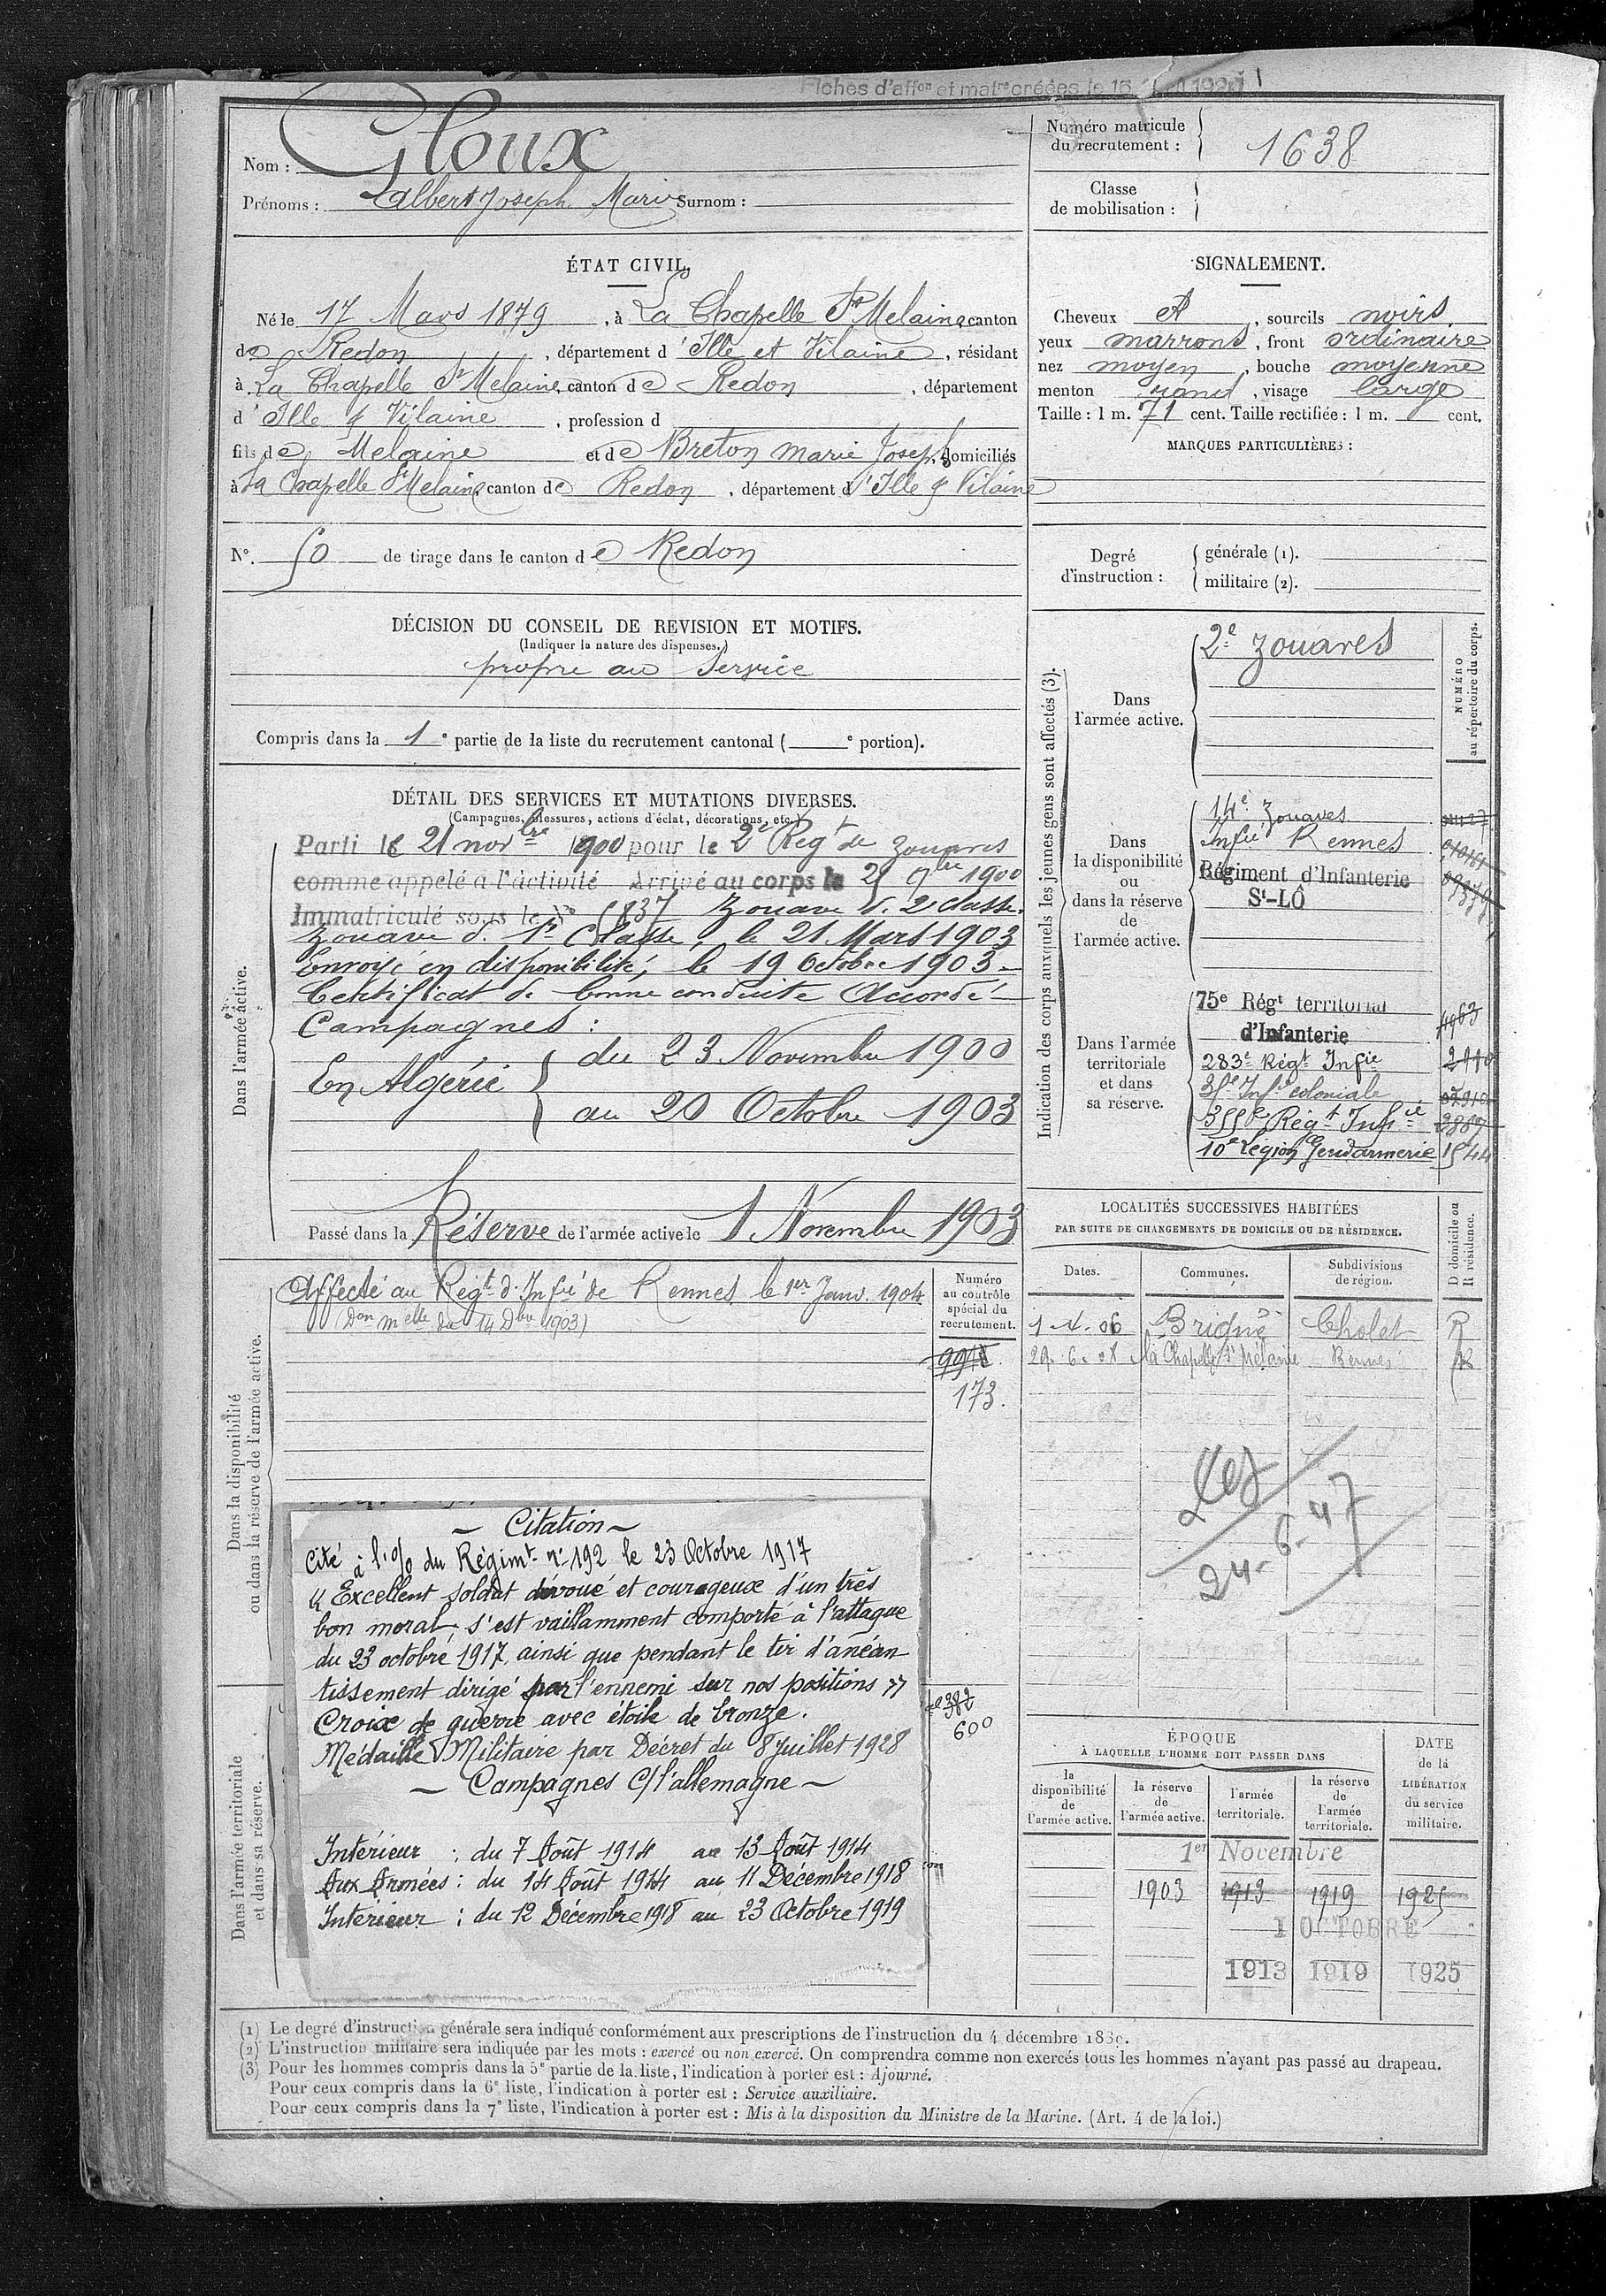 Fiches d'affon et matre créées le 16
Nom : Gloux
Prénoms : Albert Joseph Marie Surnom :
Numéro matricule
du recrutement : 1638
Classe
de mobilisation :
ÉTAT CIVIL.
Né le 17 Mars 1879, à La Chapelle St Melaine canton
de Redon, département d'Ille et Vilaine, résidant
à La Chapelle St Melaine, canton de Redon, département
d'Ille & Vilaine, profession d
fils de Melaine et de Breton Marie Joseph, domiciliés
à La Chapelle St Melaine, canton de Redon, département d'Ille & Vilaine
N° 50 de tirage dans le canton de Redon
SIGNALEMENT.
Cheveux et, sourcils noirs
yeux marrons, front ordinaire
nez moyen, bouche moyenne
menton rond, visage large
Taille : 1 m. 71 cent. Taille rectifiée : 1 m. cent.
MARQUES PARTICULIÈRES :
Degré
d'instruction :
générale (1).
militaire (2).
DÉCISION DU CONSEIL DE REVISION ET MOTIFS.
(Indiquer la nature des dispenses.)
propre au service
Compris dans la 1e partie de la liste du recrutement cantonal ( e portion).
DÉTAIL DES SERVICES ET MUTATIONS DIVERSES.
(Campagnes, blessures, actions d'éclat, décorations, etc.)
Dans l'armée active.
Parti le 21 novbre 1900 pour le 2e Regt de Zouaves
comme appelé à l'activité Arrivé au corps le 9bre 1900
Immatriculé sous le No Zouave de 2e classe.
Zouave de 1re Classe, le 21 Mars 1903
Envoyé en disponibilité, le 19 Octobre 1903
Certificat de bonne conduite Accordé
Campagnes :
En Algérie
du 23 Novembre 1900
au 20 Octobre 1903
Passé dans la Réserve de l'armée active le 1 Novembre 1903
Indication des corps auxquels les jeunes gens sont affectés (3).
NUMÉRO
au répertoire du corps.
Dans
l'armée active.
2e Zouaves
Dans
la disponibilité
ou
dans la réserve
de
l'armée active.
14e Zouaves
Infie Rennes
Régiment d'Infanterie
St-LÔ
Dans l'armée
territoriale
et dans
sa réserve.
75e Régt territorial
d'Infanterie 4963
283e Régt Infie
Infie coloniale
355e Régt Infie 2887
10e Légion Gendarmerie 1544
LOCALITÉS SUCCESSIVES HABITÉES
PAR SUITE DE CHANGEMENTS DE DOMICILE OU DE RÉSIDENCE.
D domicile ou
R résidence.
Dates. Communes. Subdivisions
de région.
1-4-06 Brigné Cholet R
29-6-08 La Chapelle St Mélaine Rennes R
24-6-47
Dans la disponibilité
ou dans la réserve de l'armée active.
Affecté au Regt d'Infie de Rennes le 1er Janv. 1904
(Don melle du 14 Dbre 1903)
Numéro
au contrôle
spécial du
recrutement.
173.
600
— Citation —
Cité à l'% du Régimt n° 192 le 23 Octobre 1917
« Excellent soldat dévoué et courageux d'un très
bon moral, s'est vaillamment comporté à l'attaque
du 23 octobre 1917, ainsi que pendant le tir d'anéan
tissement dirigé par l'ennemi sur nos positions »
Croix de guerre avec étoile de bronze.
Médaille Militaire par Décret du 8 Juillet 1928
— Campagnes C/ l'allemagne —
Intérieur : du 7 Août 1914 au 13 Août 1914
Aux Armées : du 14 Août 1914 au 11 Décembre 1918
Intérieur : du 12 Décembre 1918 au 23 Octobre 1919
Dans l'armée territoriale
et dans sa réserve.
ÉPOQUE
À LAQUELLE L'HOMME DOIT PASSER DANS
DATE
de la
LIBÉRATION
du service
militaire.
la
disponibilité
de
l'armée active.
la réserve
de
l'armée active.
l'armée
territoriale.
la réserve
de
l'armée
territoriale.
1er Novembre
1903 1913 1919 1925
1 OCTOBRE
1913 1919 1925
(1) Le degré d'instruction générale sera indiqué conformément aux prescriptions de l'instruction du 4 décembre 1889.
(2) L'instruction militaire sera indiquée par les mots : exercé ou non exercé. On comprendra comme non exercés tous les hommes n'ayant pas passé au drapeau.
(3) Pour les hommes compris dans la 5e partie de la liste, l'indication à porter est : Ajourné.
Pour ceux compris dans la 6e liste, l'indication à porter est : Service auxiliaire.
Pour ceux compris dans la 7e liste, l'indication à porter est : Mis à la disposition du Ministre de la Marine. (Art. 4 de la loi.)